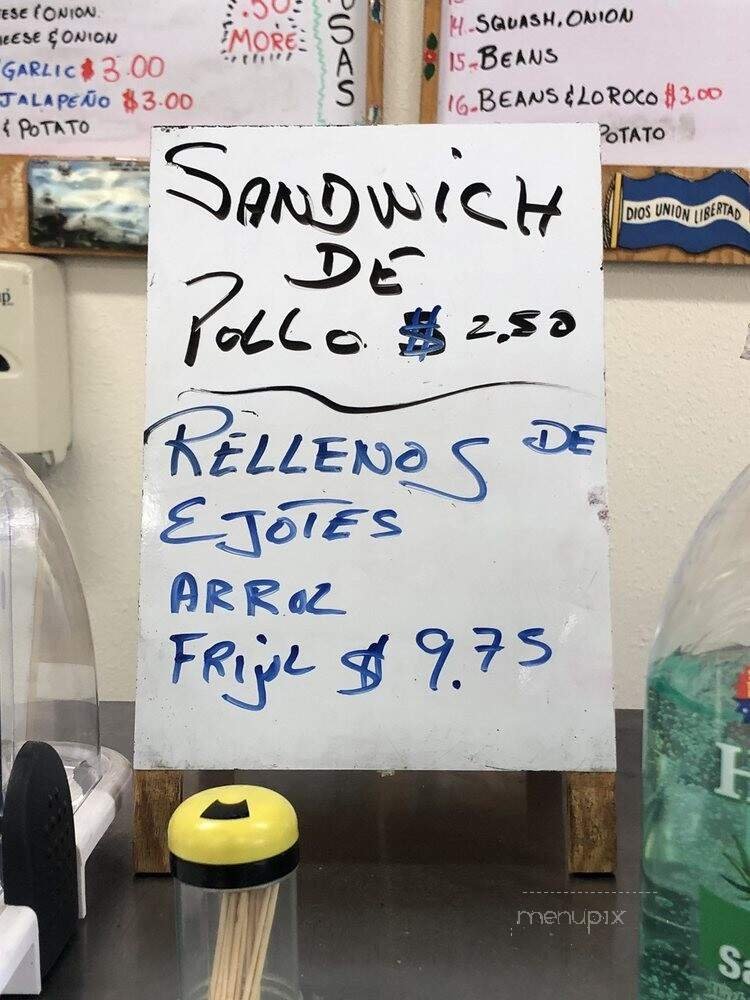 & ONION
& ONION
GARLIC $3.00
JALAPEÑO $3.00
& POTATO
.50
MORE
SAS
14. SQUASH, ONION
15. BEANS
16. BEANS & LOROCO $3.00
POTATO
DIOS UNION LIBERTAD
SANDWICH
DE
POLLO $ 2.50
RELLENOS DE
EJOTES
ARROZ
FRIJOL $ 9.75
menupix